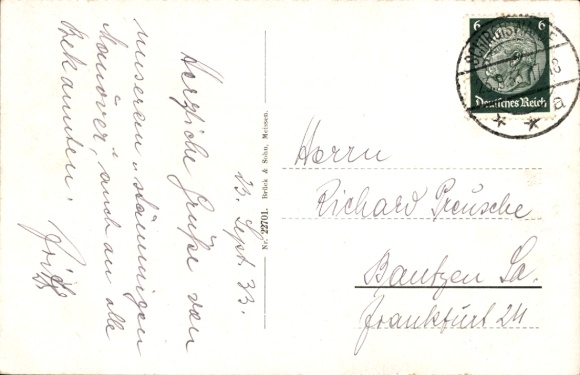 23. Sept. 33.
Herzliche Grüße von
unseren „stämmigen
Manöver", auch an alle
Bekannten.
Fritz
Nr. 22701. Brück & Sohn, Meissen.
6 6
Deutsches Reich
a
Herrn
Richard Preusche
Bautzen Sa.
Frankfurt 24